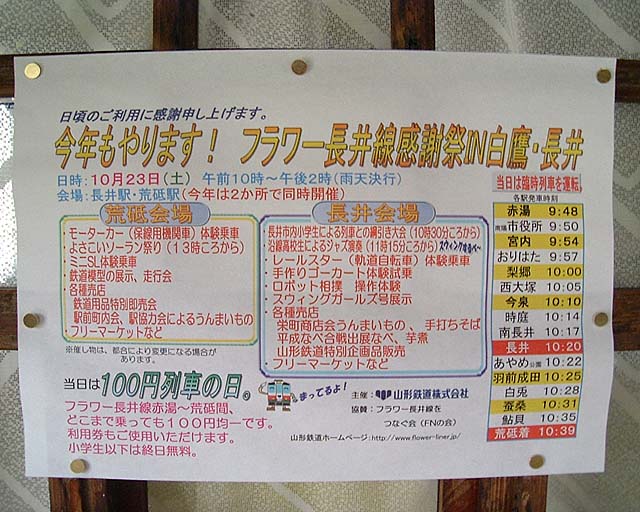 日頃のご利用に感謝申し上げます。
今年もやります! フラワー長井線感謝祭IN白鷹・長井
日時:10月23日(土) 午前10時~午後2時(雨天決行)
会場:長井駅・荒砥駅(今年は2か所で同時開催)
荒砥会場
・モーターカー(保線用機関車)体験乗車
・よさこいソーラン祭り(13時ころから)
・ミニSL体験乗車
・鉄道模型の展示、走行会
・各種売店
鉄道用品特別即売会
駅前町内会、駅協力会によるうんまいもの
・フリーマーケットなど
※催し物は、都合により変更になる場合が
あります。
長井会場
・長井市内小学生による列車との綱引き大会(10時30分ころから)
・沿線高校生によるジャズ演奏(11時15分ころから)スウィングするべ~
・レールスター(軌道自転車)体験乗車
・手作りゴーカート体験試乗
・ロボット相撲 操作体験
・スウィングガールズ号展示
・各種売店
栄町商店会うんまいもの、手打ちそば
平成なべ合戦出展なべ、芋煮
山形鉄道特別企画品販売
・フリーマーケットなど
当日は臨時列車を運転。
各駅発車時刻
赤湯 9:48
南陽市役所 9:50
宮内 9:54
おりはた 9:57
梨郷 10:00
西大塚 10:05
今泉 10:10
時庭 10:14
南長井 10:17
長井 10:20
あやめ公園 10:22
羽前成田 10:25
白兎 10:28
蚕桑 10:31
鮎貝 10:35
荒砥着 10:39
当日は100円列車の日。
まってるよ!
フラワー長井線赤湯~荒砥間、
どこまで乗っても100円均一です。
利用券もご使用いただけます。
小学生以下は終日無料。
主催:山形鉄道株式会社
協賛:フラワー長井線を
つなぐ会(FNの会)
山形鉄道ホームページ:http://www.flower-liner.jp/